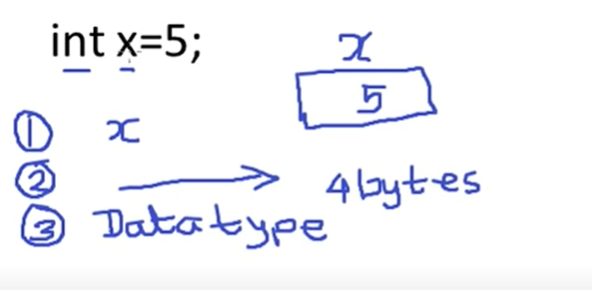 int x=5;
x
5
① x
② → 4 bytes
③ Datatype